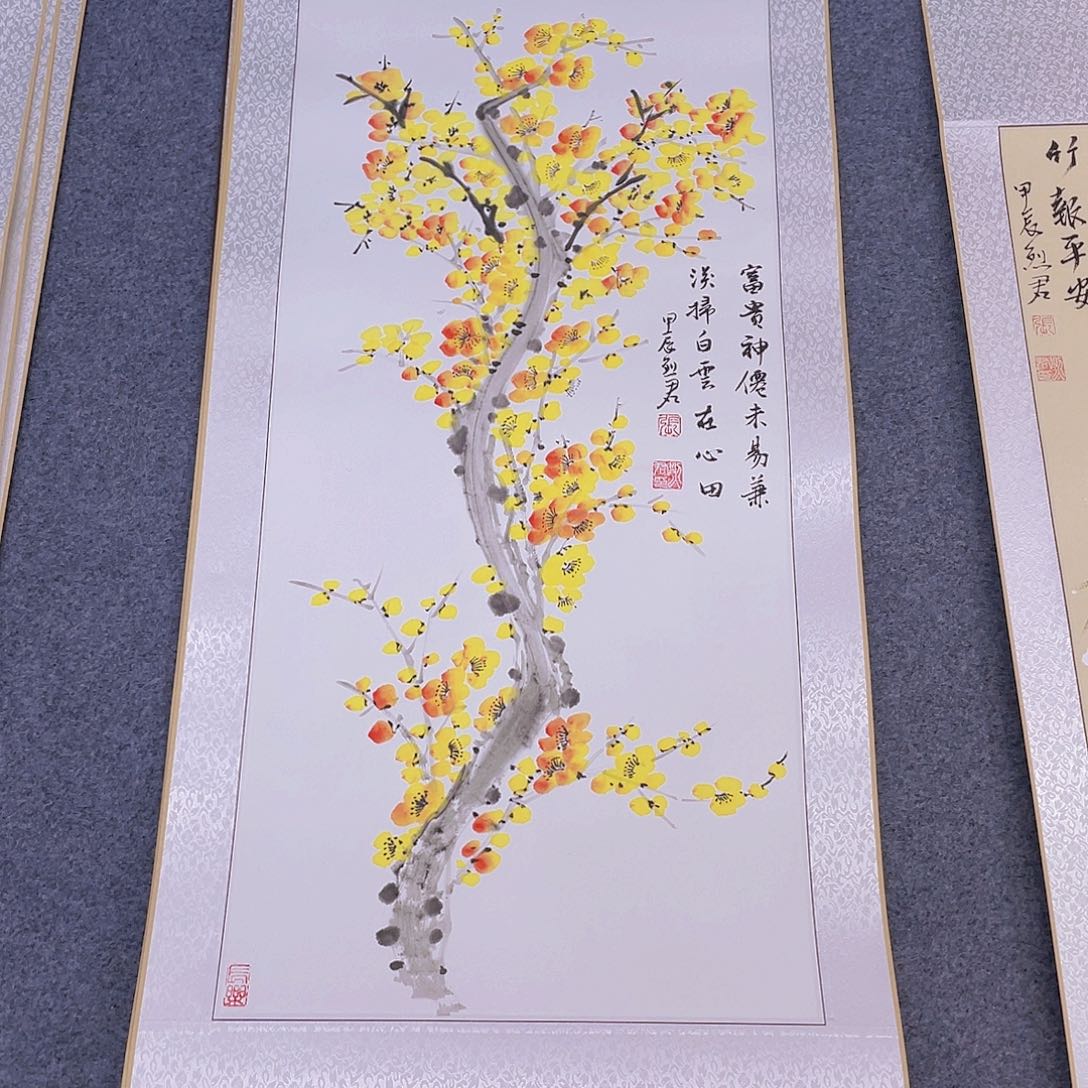 富貴神僊未易兼
淡掃白雲在心田
甲辰烈君
張
竹報平安
甲辰烈君
張